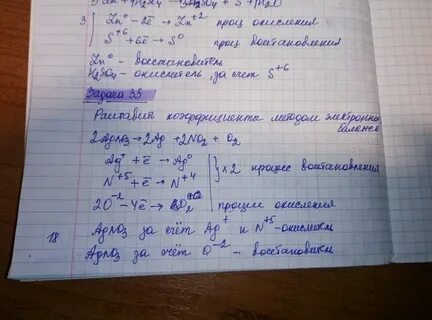 3Zn + 4H₂SO₄ → 3ZnSO₄ + S + 4H₂O
3 | Zn⁰ - 2ē → Zn⁺² проц окисления
S⁺⁶ + 6ē → S⁰ проц восстановления
Zn⁰ - восстановитель
H₂SO₄ - окислитель, за счет S⁺⁶
Задача 35
Раставить коэффициенты методом электронно
баланса
2AgNO₃ → 2Ag + 2NO₂ + O₂
Ag⁺ + ē → Ag⁰
N⁺⁵ + ē → N⁺⁴ } x2 процесс восстановления
2O⁻² - 4ē → O₂ процесс окисления
18 AgNO₃ за счёт Ag⁺ и N⁺⁵ - окислит
AgNO₃ за счёт O⁻² - восстановит